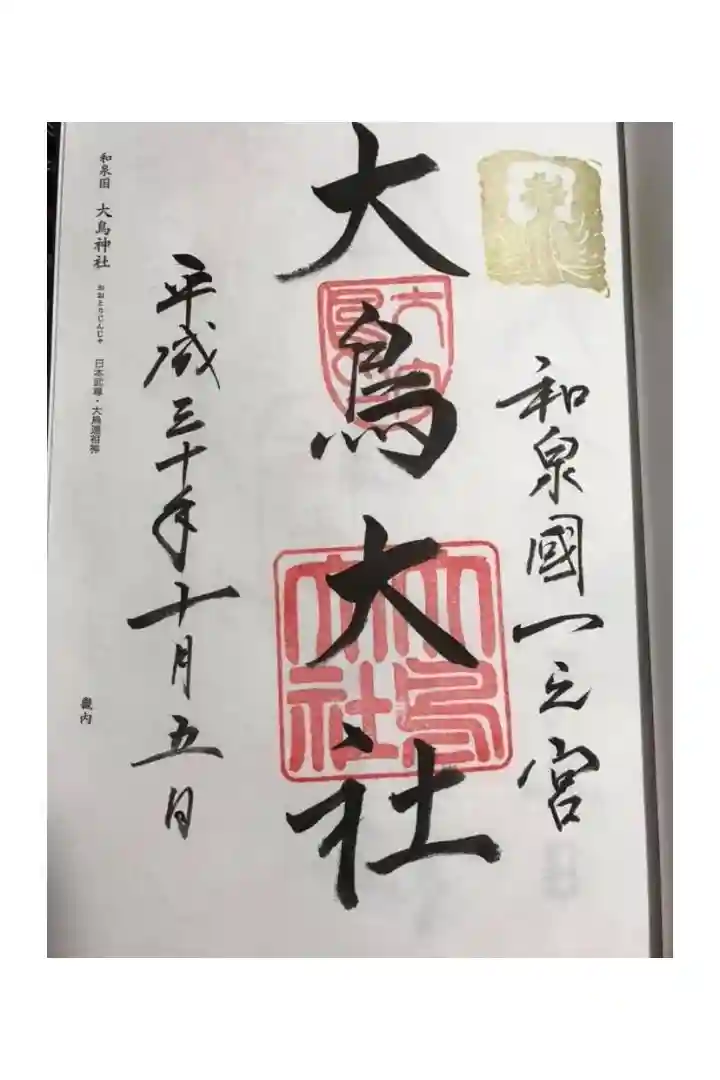 和泉國一之宮
大鳥大社
大鳥大社
平成三十年十月五日
和泉国 大鳥神社 おおとりじんじゃ 日本武尊・大鳥連祖神
畿内